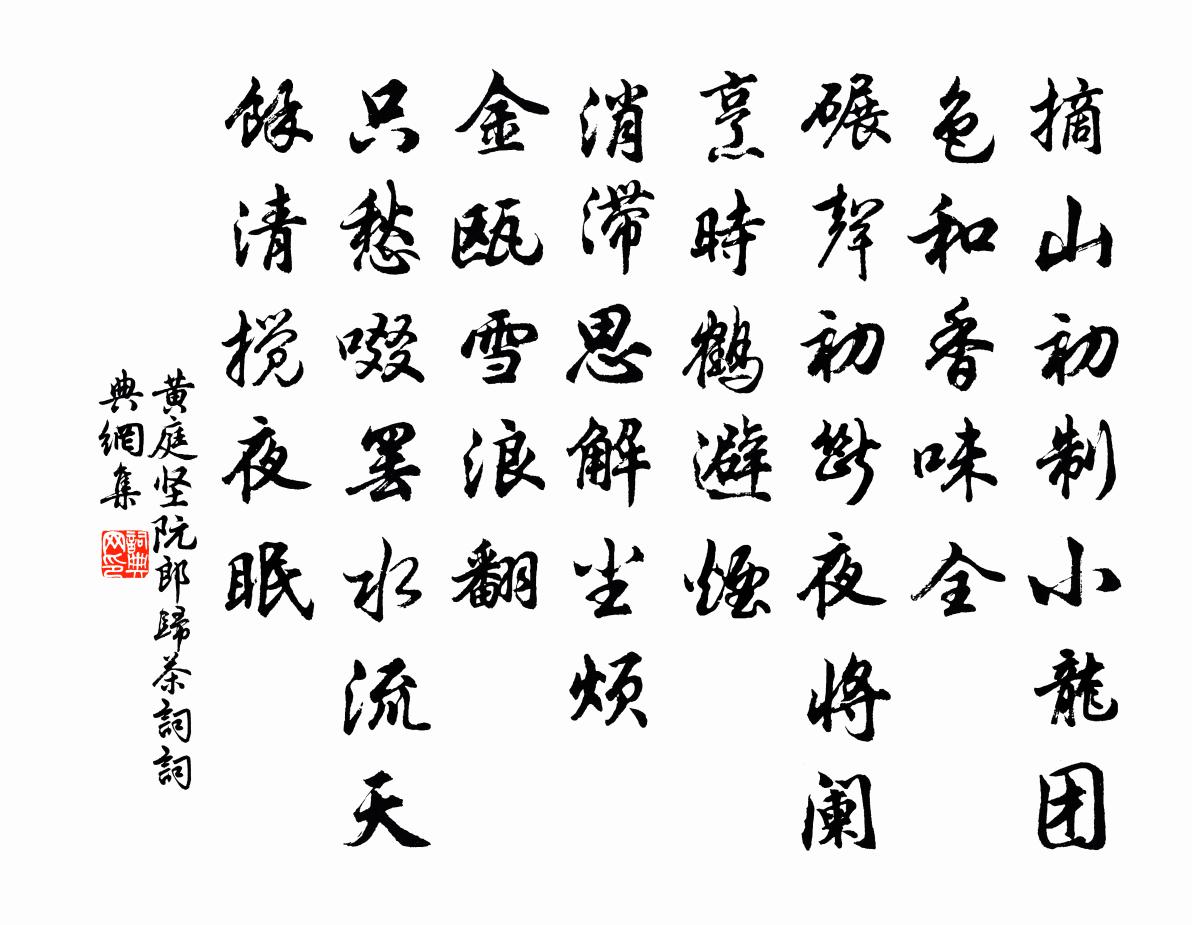 摘山初制小龍团
色和香味全
碾聲初断夜将阑
烹時鶴避煙
消滞思解尘烦
金瓯雪浪翻
只愁啜罢水流天
餘清搅夜眠
黄庭坚阮郎歸茶詞詞
典網集
詞典网印